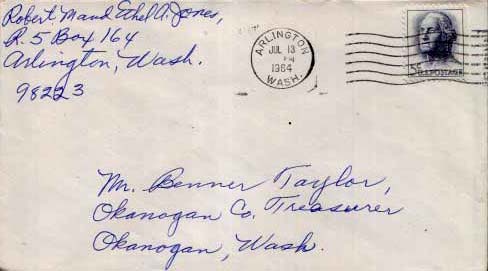 Robert M and Ethel A. Jones,
R. 5 Box 164
Arlington, Wash.
98223
ARLINGTON
JUL 13
PM
1964
WASH.
5¢
U.S. POSTAGE
Mr. Benner Taylor,
Okanogan Co. Treasurer
Okanogan, Wash.